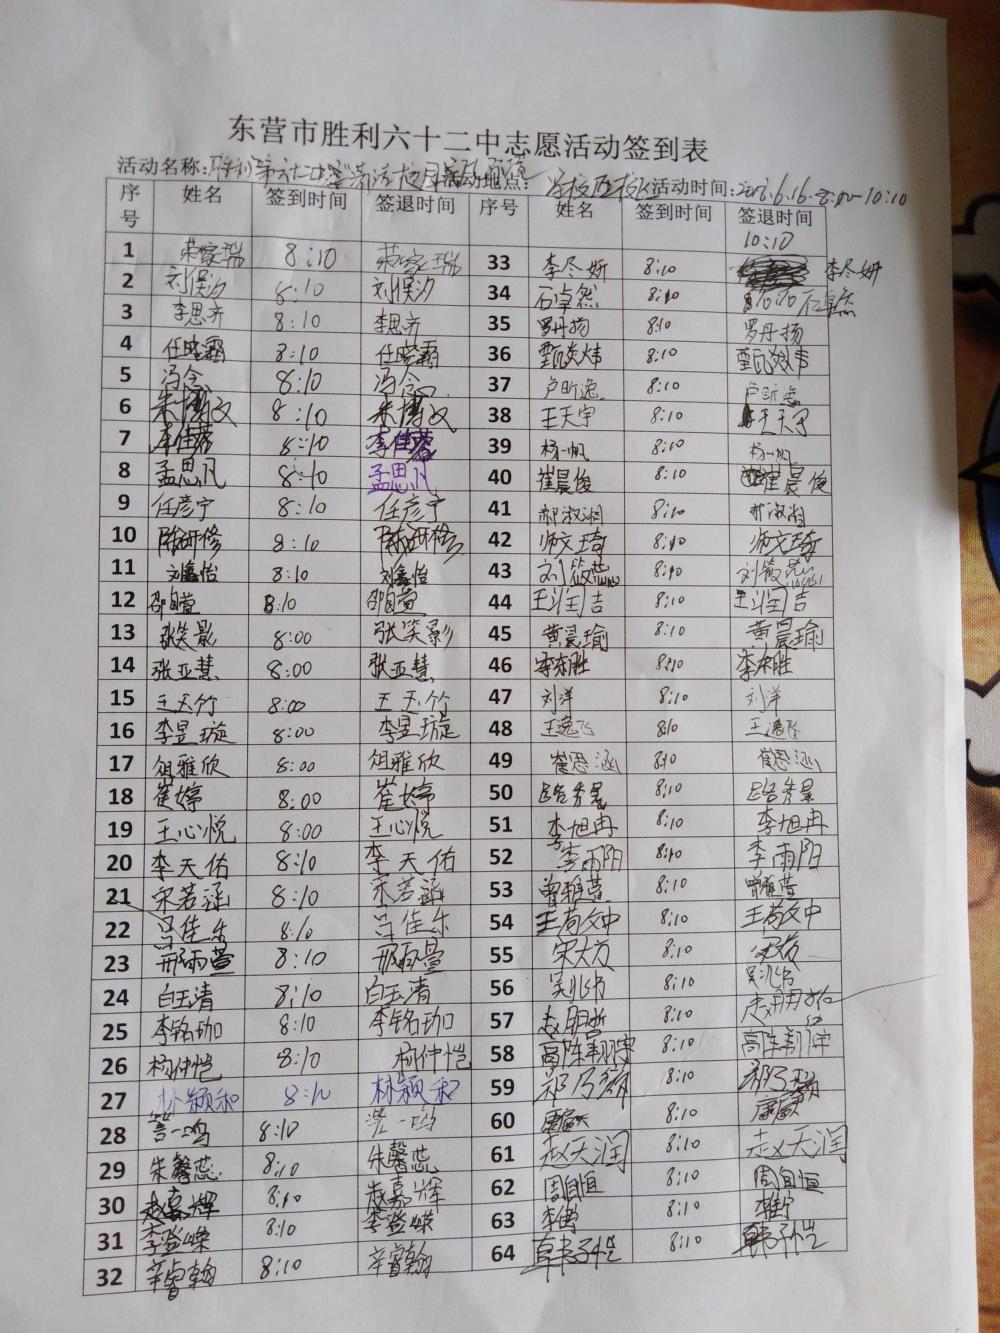 东营市胜利六十二中志愿活动签到表
活动名称: 活动地点: 学校 活动时间:2016.6.16.8:00-10:10
序号 姓名 签到时间 签退时间 序号 姓名 签到时间 签退时间 10:10
1 荣家瑞 8:10 荣家瑞 33 8:10
2 刘俣汐 8:10 刘俣汐 34 石卓然 8:10 10:10 石卓然
3 李思齐 8:10 李思齐 35 罗丹扬 8:10 罗丹扬
4 任晓霸 8:10 任晓霸 36 甄炎炜 8:10 甄炎炜
5 冯念 8:10 冯念 37 卢昕逸 8:10 卢昕逸
6 朱博文 8:10 朱博文 38 王天宇 8:10 王天宇
7 李佳蓉 8:10 李佳蓉 39 杨一帆 8:10 杨一帆
8 孟思凡 8:10 孟思凡 40 崔晨俊 8:10 崔晨俊
9 任彦宁 8:10 任彦宁 41 郝淑湘 8:10 郝淑湘
10 陈研修 8:10 陈研修 42 师文琦 8:10 师文琦
11 刘鑫怡 8:10 刘鑫怡 43 刘筱 8:10 刘筱
12 邵自萱 8:10 邵自萱 44 王润吉 8:10 王润吉
13 张笑影 8:00 张笑影 45 黄晨瑜 8:10 黄晨瑜
14 张亚慧 8:00 张亚慧 46 李东胜 8:10 李东胜
15 王玉竹 8:00 王玉竹 47 刘洋 8:10 刘洋
16 李昱璇 8:00 李昱璇 48 王逸飞 8:10 王逸飞
17 俎雅欣 8:00 俎雅欣 49 崔恩涵 8:10 崔恩涵
18 崔婷 8:00 崔婷 50 8:10
19 王心悦 8:00 王心悦 51 李旭冉 8:10 李旭冉
20 李天佑 8:10 李天佑 52 李雨阳 8:10 李雨阳
21 宋若涵 8:10 宋若涵 53 曾雅萱 8:10 曾雅萱
22 吕佳乐 8:10 吕佳乐 54 王苟文中 8:10 王苟文中
23 邢雨萱 8:10 邢雨萱 55 宋大方 8:10
24 白玉清 8:10 白玉清 56 吴兆 8:10 吴兆
25 李铭珈 8:10 李铭珈 57 赵朋 8:10 赵朋
26 杨仲恺 8:10 杨仲恺 58 高陈翔宇 8:10 高陈翔宇
27 林颖和 8:10 林颖和 59 8:10
28 一鸣 8:10 一鸣 60 8:10
29 朱馨蕊 8:10 朱馨蕊 61 赵天润 8:10 赵天润
30 赵嘉辉 8:10 赵嘉辉 62 周自恒 8:10 周自恒
31 李登嵘 8:10 李登嵘 63 8:10
32 辛睿翰 8:10 辛睿翰 64 韩子恺 8:10 韩子恺